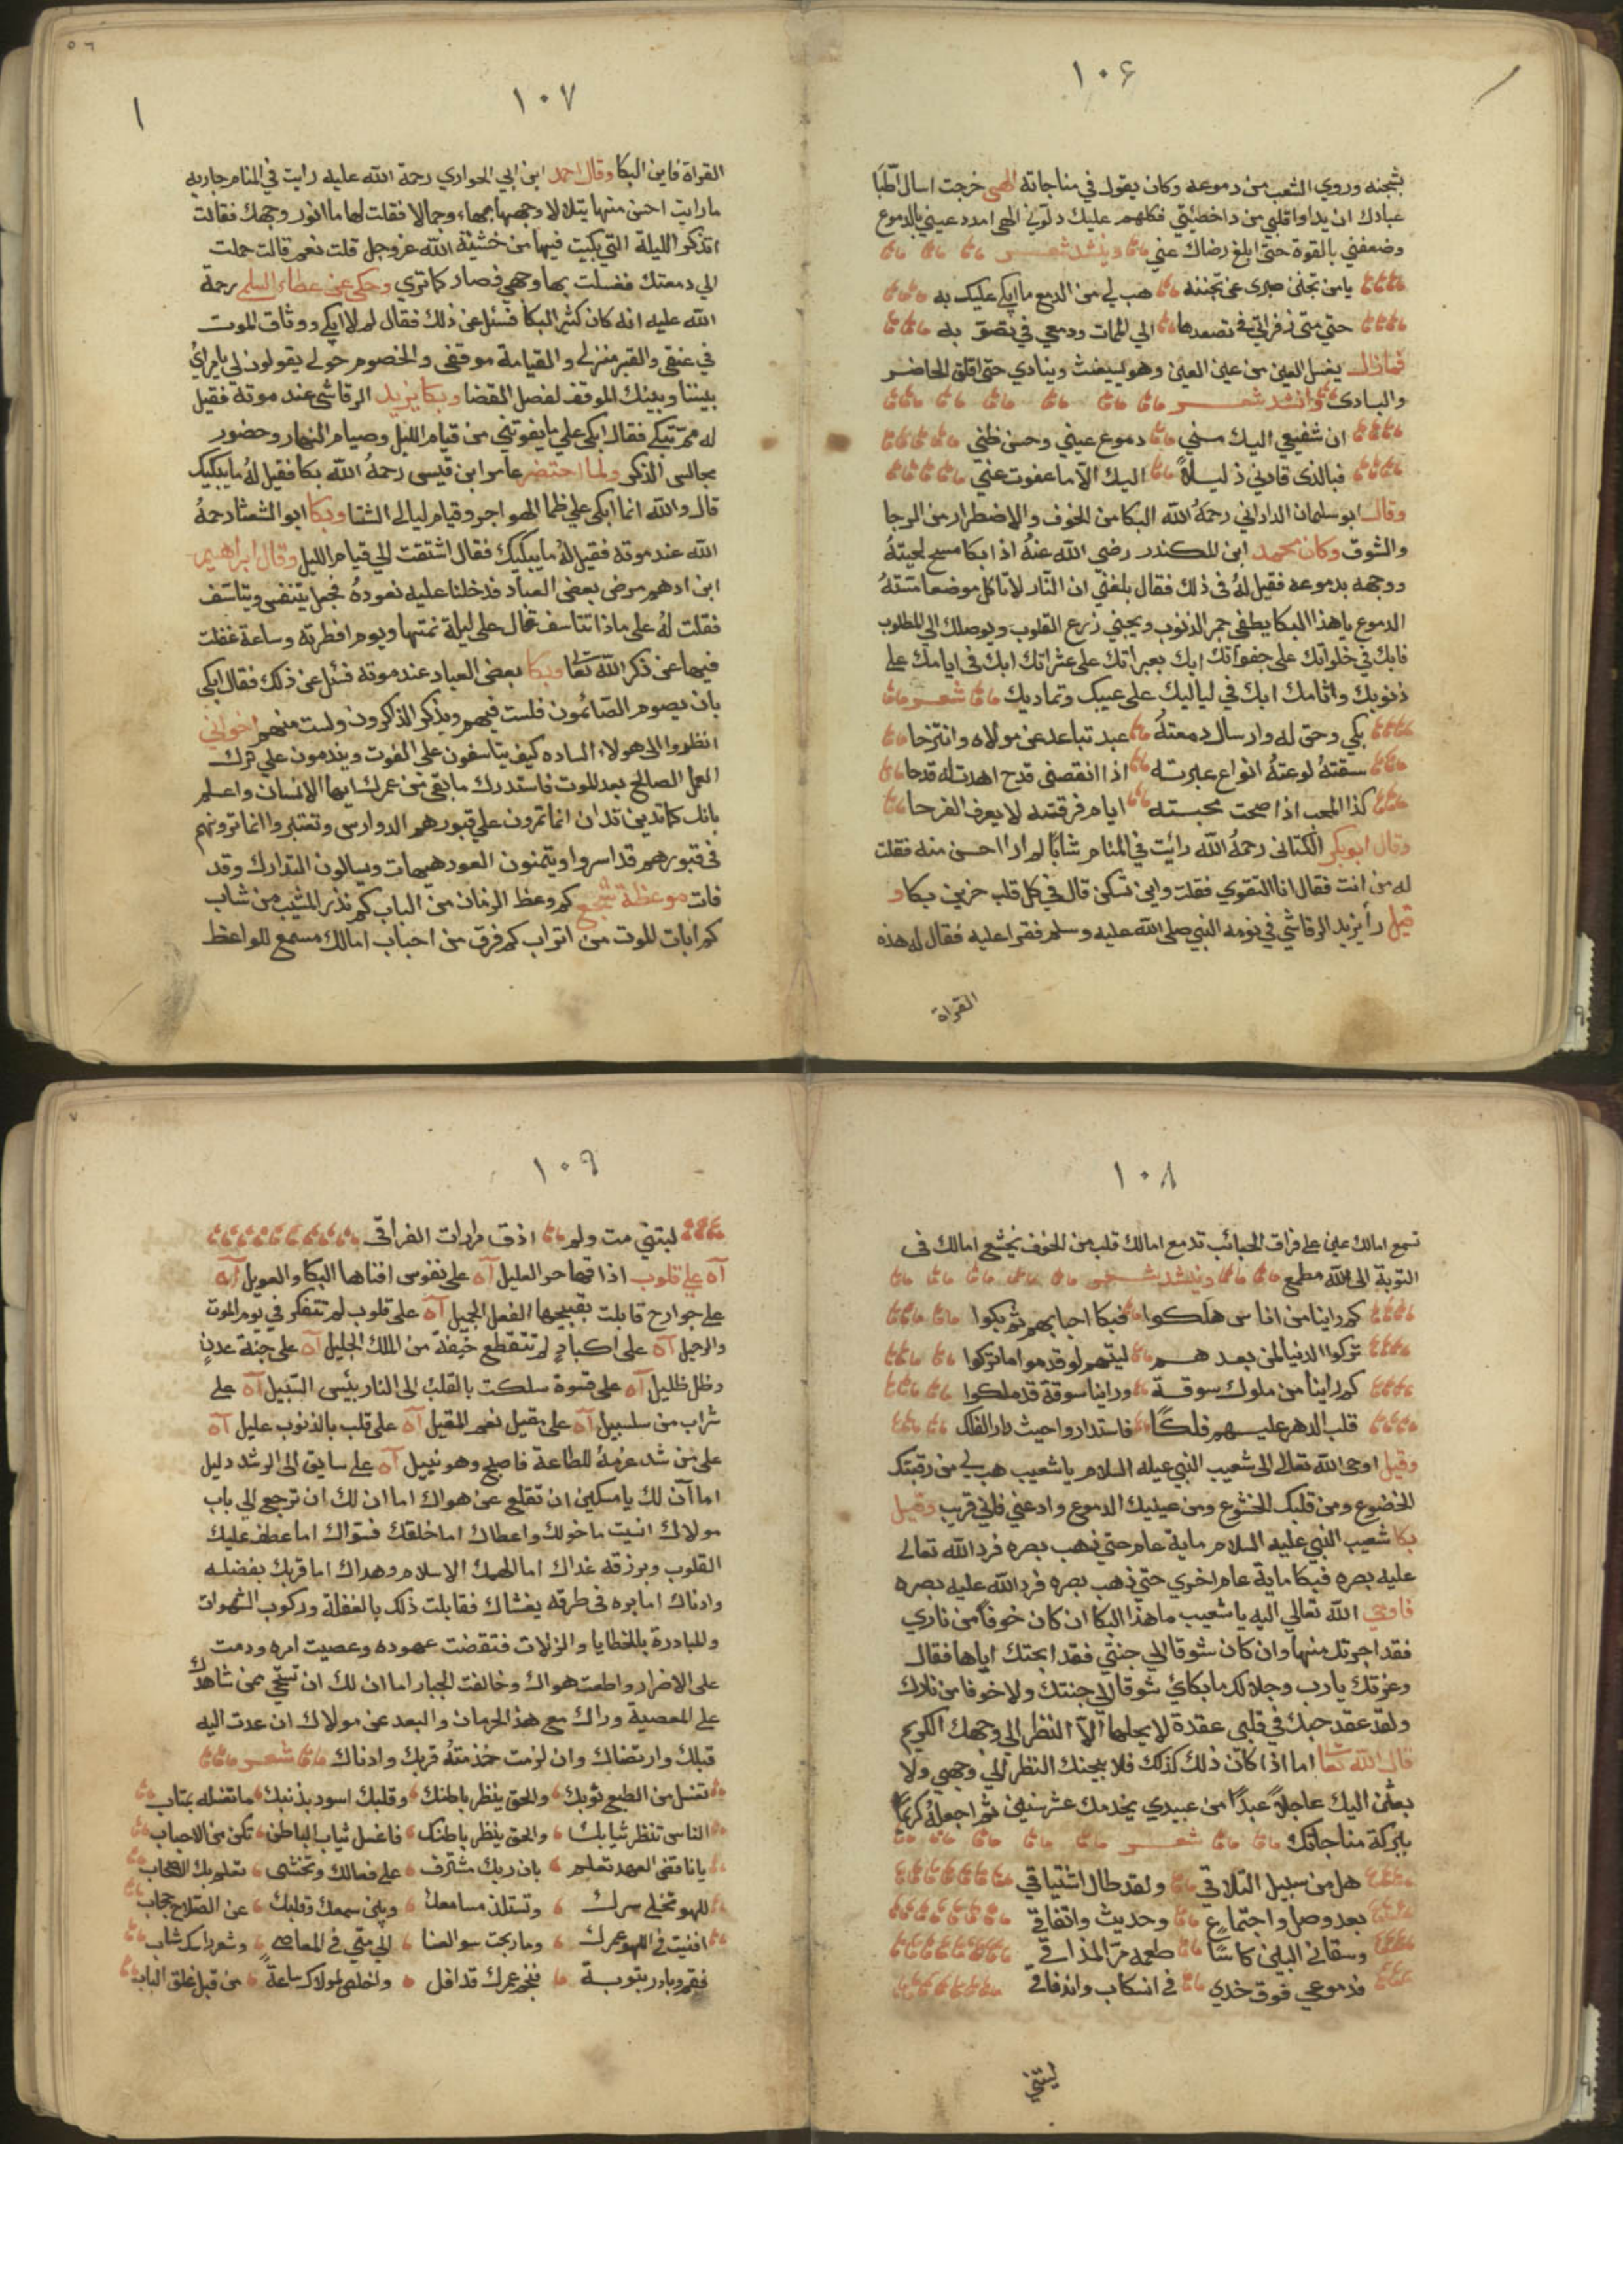 ١٠٦
بشجنه وروي الشعب من دموعه وكان يقول في مناجاته الهى خرجت اسال اطبا
عبادك ان يداوا قلبي من دا خطئيتي فكلهم عليك دلوني الهى امدد عيني بالدموع
وضعفني بالقوة حتى ابلغ رضاك عني وينشد شعر
يا من تجنى صبرى عن تجننه هب لي من الدمع ما ابكي عليك به
حتي متى زفراتي في تصعدها الي الممات ودمعي في تصوبه
فما زال يغسل العين من عين العين وهو يستغيث وينادي حتى اقلق الحاضر
والبادى وانشد شعر
ان شفيعي اليك مني دموع عيني وحسن ظني
فبالذى قادني ذليلاً اليك الا ما عفوت عني
وقال ابو سليمان الداراني رحمهُ الله البكا من الخوف والاضطرار من الرجا
والشوق وكان محمد ابن المكندر رضي الله عنهُ اذا بكا مسح لحيتهُ
ووجهه بدموعه فقيل لهُ فى ذلك فقال بلغني ان النار لا تاكل موضعا مستهُ
الدموع يا هذا البكا يطفى جمر الذنوب ويجبني زرع القلوب ويوصلك الي المطلوب
فابك في خلواتك على جفواتك ابك بعبراتك على عثراتك ابك فى ايامك على
ذنوبك واثامك ابك في لياليك على عيبك وتماديك شعر
بكي وحق له وارسال دمعتهُ عبد تباعد عن مولاه وانتزحا
سقتهُ لوعتهُ انواع عبرته اذا انقصى قدح اهدت له قدحا
كذا المحب اذا صحت محبته ايام فرقته لا يعرف الفرحا
وقال ابوبكر الكتانى رحمهُ الله رائت في المنام شابًا لم ارا احسن منه فقلت
له من انت فقال انا التقوي فقلت واين تسكن قال في كل قلب حزين بكا و
قيل رأ يزيد الرقاشي في نومه النبي صلى الله عليه وسلم فقرا عليه فقال له هذه
القراة
١٠٧
القراة فاين البكا وقال احمد ابن ابي الحواري رحمة الله عليه رايت في المنام جاريه
ما رايت احسن منها يتلالا وجهها بهاء وجمالا فقلت لها ما انور وجهك فقالت
اتذكر الليلة التي بكيت فيها من خشية الله عز وجل قلت نعم قالت حملت
الي دمعتك فغسلت بها وجهي فصار كما تري وحكى عن عطاء السلمي رحمة
الله عليه انه كان كثير البكا فسئل عن ذلك فقال لم لا ابكي ووثاق الموت
في عنقي والقبر منزلي والقيامة موقفى والخصوم حولي يقولون لي يا مرائي
بيننا وبينك الموقف لفصل القضا وبكا يزيد الرقاشى عند موته فقيل
له مم تبكي فقال ابكي علي ما يفوتني من قيام الليل وصيام النهار وحضور
مجالس الذكر ولما احتضر عامر ابن قيس رحمهُ الله بكا فقيل لهُ ما يبكيك
قال والله انما ابكي علي ظما الهواجر وقيام ليالي الشتا وبكا ابو الشعثا رحمهُ
الله عند موته فقيل لهُ ما يبكيك فقال اشتقت الي قيام الليل وقال ابراهيم
ابن ادهم مرض بعض العباد فدخلنا عليه نعودهُ فجعل يتنفس ويتاسف
فقلت لهُ على ماذا تتاسف فقال على ليلة نمتها ويوم افطرته وساعة غفلت
فيها عن ذكر الله تعا وبكا بعض العباد عند موته فسئل عن ذلك فقال ابكي
بان يصوم الصائمون فلست فيهم ويذكر الذاكرون ولست منهم اخواني
انظروا الى هولاء الساده كيف يتاسفون على الفوت ويندمون علي ترك
العمل الصالح بعد الموت فاستدرك ما بقي من عمرك ايها الانسان واعلم
بانك كما تدين تدان انما تمرون علي قبورهم الدوارس وتعتبروا انما ترونهم
فى قبورهم قد اسروا ويتمنون العود هيهات ويسالون التدارك وقد
فات موعظة كم وعظ الزمان من الباب كم نذر المشيب من شاب
كم ابات الموت من اتراب كم فرق من احباب امالك مسمع للواعظ
١٠٨
تسمع امالك عين على فراق الحبائب تدمع امالك قلب من الخوف يخشع امالك فى
التوبة الى الله مطمع وينشد شعر
كم راينا من اناس هلكوا فبكا احبابهم ثم بكوا
تركوا الدنيا لمن بعدهم ليتهم لو قدموا ما تركوا
كم راينا من ملوك سوقة وراينا سوقة قد ملكوا
قلب الدهر عليهم فلكًا فاستداروا حيث دار الفلك
وقيل اوحى الله تعالى الى شعيب النبي عيله السلام يا شعيب هب لي من رقبتك
الخضوع ومن قلبك الخشوع ومن عينيك الدموع وادعني فاني قريب وقيل
بكا شعيب النبي عليه السلام ماية عام حتي ذهب بصره فرد الله تعالى
عليه بصره فبكا ماية عام اخري حتي ذهب بصره فرد الله عليه بصره
فاوحي الله تعالي اليه يا شعيب ما هذا البكا ان كان خوفًا من ناري
فقد اجرتك منها وان كان شوقا الي جنتي فقد ابحتك اياها فقال
وعزتك يا رب وجلالك ما بكائي شوقا الي جنتك ولا خوفا من نارك
ولقد عقد حبك في قلبي عقدة لا يحلها الا النظر الي وجهك الكريم
قال الله تعا اما اذا كان ذلك كذلك فلابيحنك النظر الي وجهي ولا
بعثن اليك عاجلا عبدًا من عبيدي يخدمك عشر سنين ثم اجعلهُ كريمًا
ببركة مناجاتك شعر
هل من سبيل التلاقي ولقد طال اشتياقي
بعد وصل واجتماع وحديث واتفاقي
وسقاني البين كاسًا طعمه مر المذاقي
فدموعي فوق خدي في انسكاب واندفاقي
ليتني
١٠٩
ليتني مت ولم اذق مرارات الفراقى
آه على قلوب اذاقها حر العليل آه على نفوس افناها البكا والعويل آه
على جوارح قابلت بقبيحها الفعل الجميل آه على قلوب لم تتفكر في يوم الموت
والرحيل آه على اكبادٍ لم تتقطع خيفة من الملك الجليل آه على جنة عدنٍ
وظل ظليل آه على قسوة سلكت بالقلب الى النار بئس السبيل آه على
شراب من سلسبيل آه على مقيل نعم المقيل آه على قلب بالذنوب عليل آه
على من شد عزمهُ للطاعة فاصبح وهو نبيل آه على سايق الى الرشد دليل
اما آن لك يا مسكين ان تقلع عن هواك اما ان لك ان ترجع الي باب
مولاك انسيت ما خولك واعطاك اما خلقك فسواك اما عطف عليك
القلوب وبرزقه غداك اما الهمك الاسلام وهداك اما قربك بفضله
وادناك اما بره فى طرقه يغشاك فقابلت ذلك بالغفلة وركوب الشهوات
والمبادرة بالخطايا والزلات فنقضت عهوده وعصيت امره ودمت
على الاضرار واطعت هواك وخالفت الجبار اما ان لك ان تستحي ممن شاهدك
على المعصية وراك مع هذا الحرمان والبعد عن مولاك ان عدت اليه
قبلك وارتضاك وان لزمت خذمتهُ قربك وادناك شعر
تغسل من الطبع ثوبك والحق ينظر باطنك وقلبك اسود بذنبك ما تغسله بمتاب
الناس تنظر ثيابك والحق ينظر باطنك فاغسل ثياب الباطن تكن من الاحباب
يا ناقض العهد تعلم بان ربك مشرف على فعالك وتخشى تعلم بك الاصحاب
للهو تخلي سرك وتستلذ مسامعك وبين سمعك وقلبك عن الصلاح حجاب
افنيت فى اللهو عمرك وما ربحت سوا العنا الي متي في المعاصي وشعر راسك شاب
فقم وبادر بتوبة فنجم عمرك قد افل واخلص لمولاك ساعةً من قبل غلق الباب